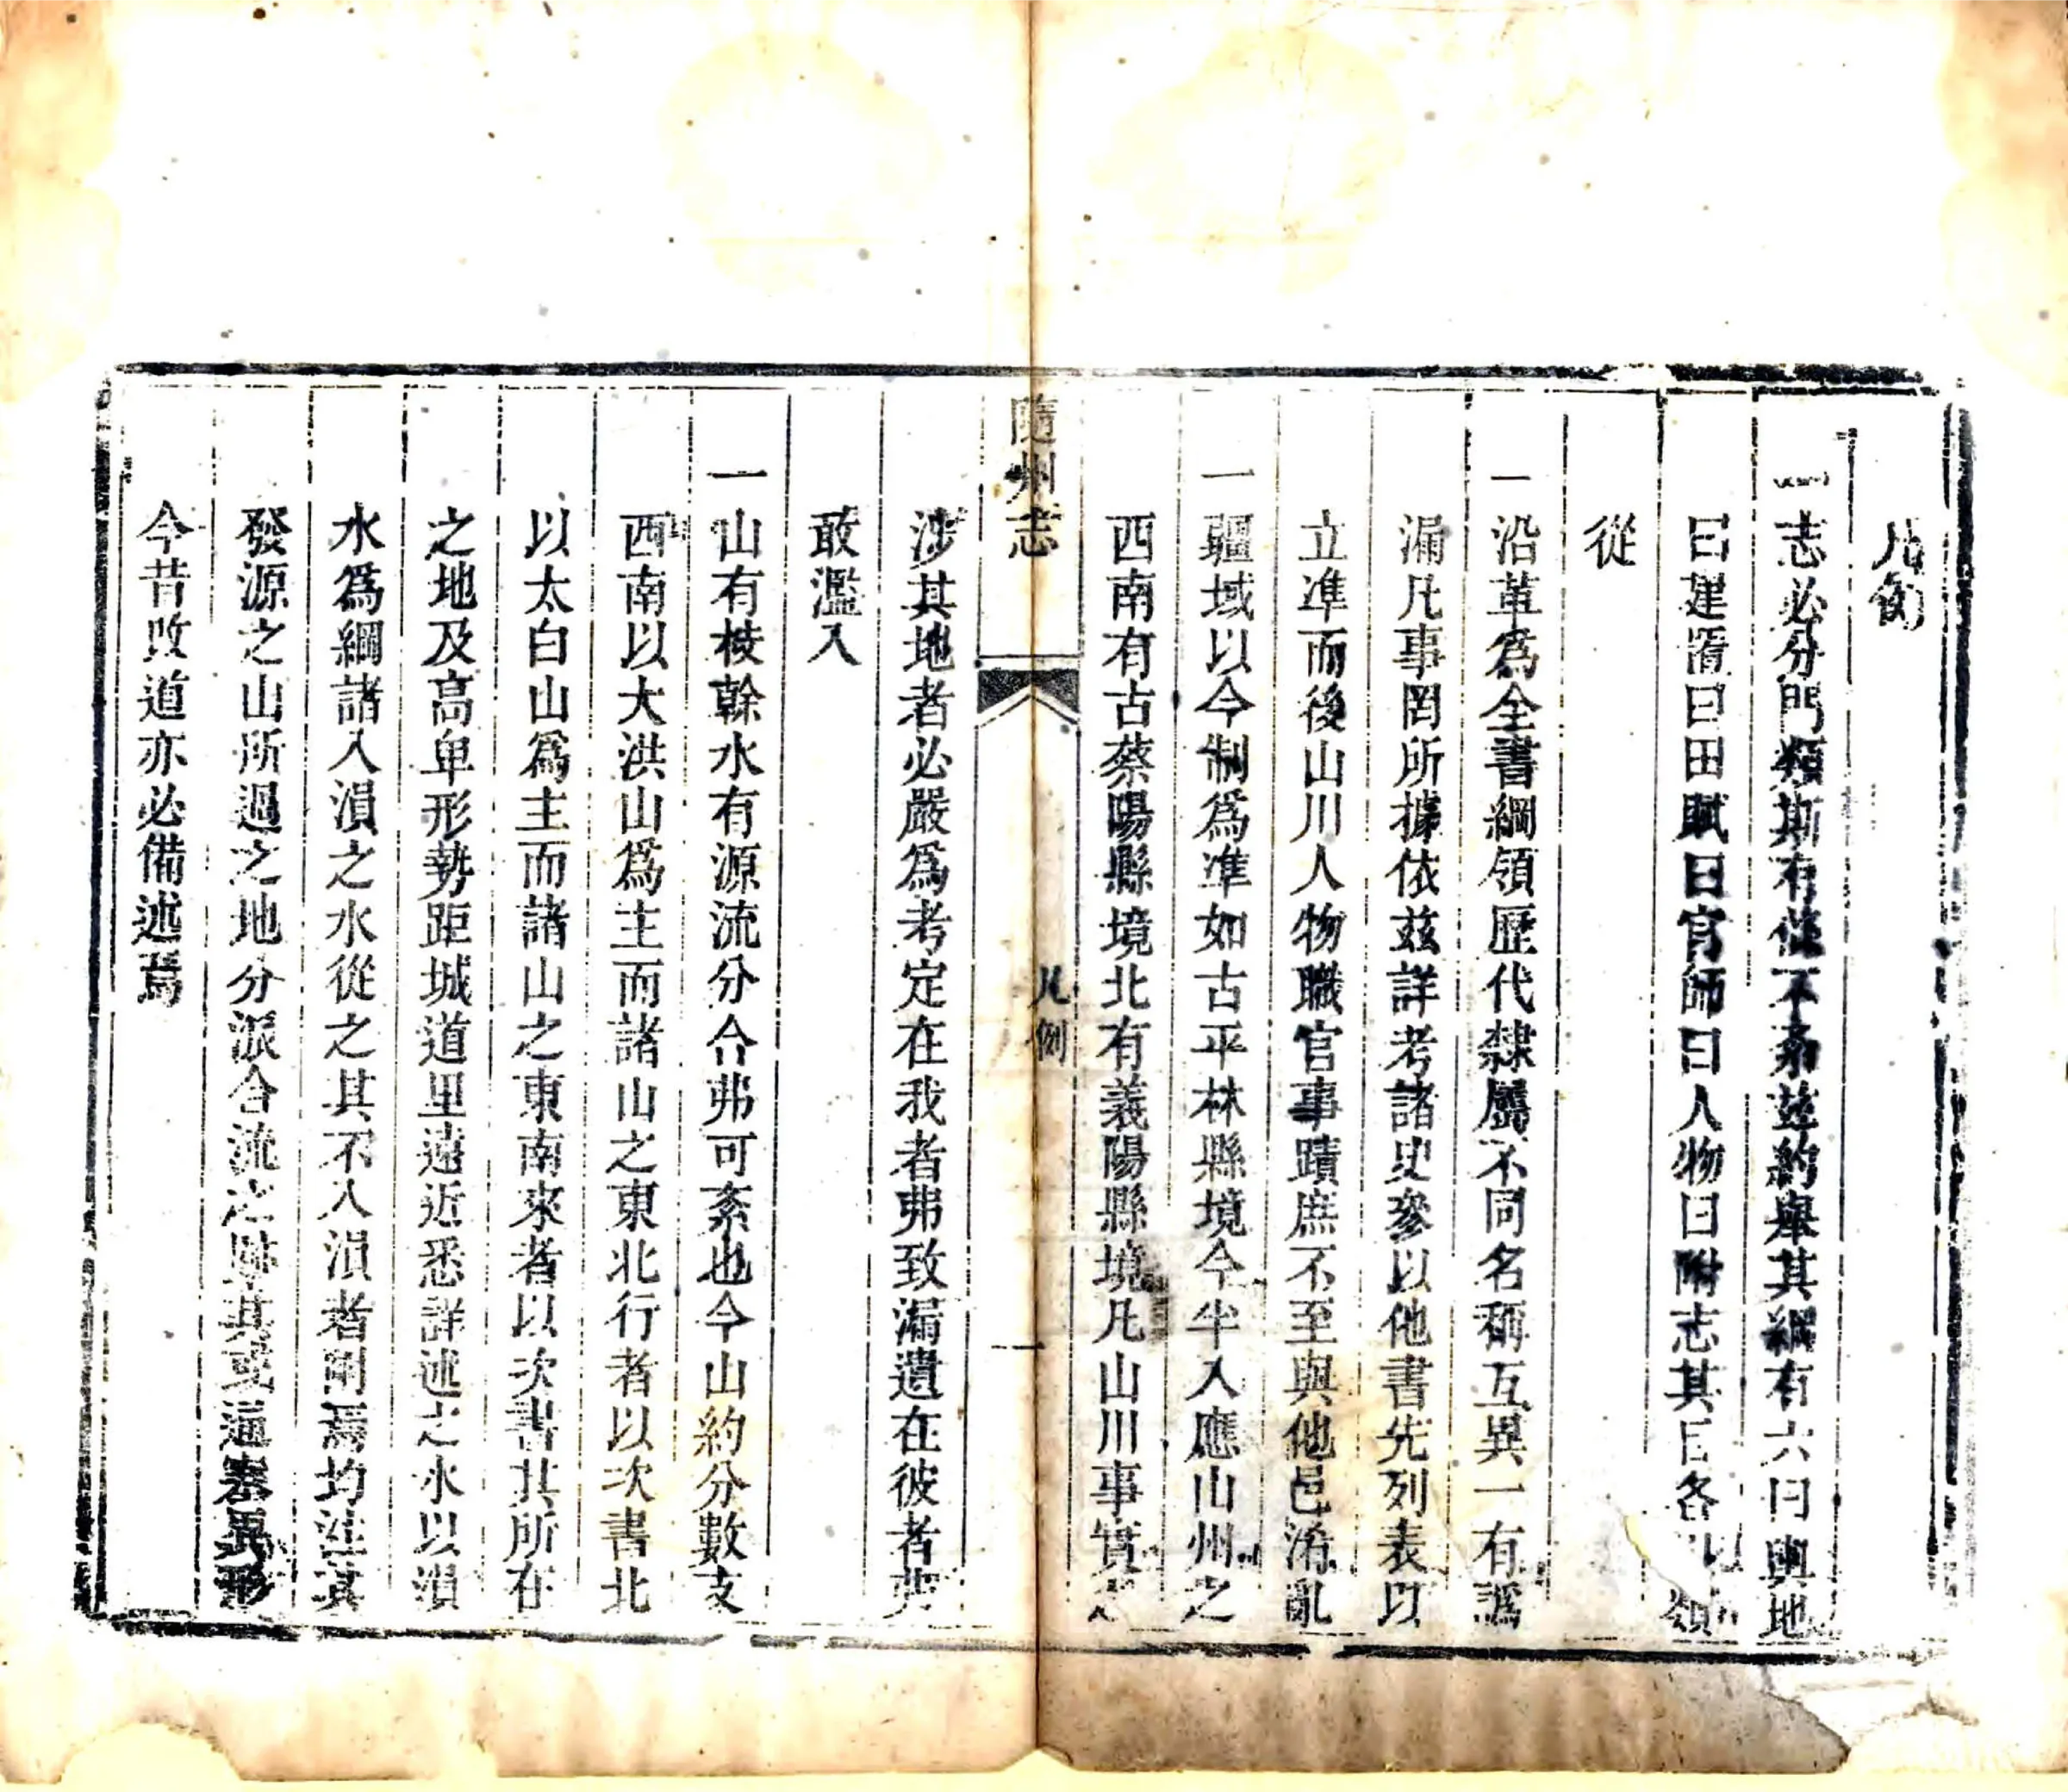 凡例
一志必分門類斯有條不紊茲約舉其綱有六曰輿地
曰建置曰田賦曰官師曰人物曰附志其目各以類
從
一沿革爲全書綱領歷代隸屬不同名稱互異一有譌
漏凡事罔所據依茲詳考諸史參以他書先列表以
立準而後山川人物職官事蹟庶不至與他邑淆亂
一疆域以今制爲準如古平林縣境今半入應山州之
西南有古蔡陽縣境北有義陽縣境凡山川事實之
隨州志
凡例
一
涉其地者必嚴爲考定在我者弗致漏遺在彼者弗
敢濫入
一山有枝幹水有源流分合弗可紊也今山約分數支
西南以大洪山爲主而諸山之東北行者以次書北
以太白山爲主而諸山之東南來者以次書其所在
之地及高卑形勢距城道里遠近悉詳述之水以溳
水爲綱諸入溳之水從之其不入溳者附焉均注其
發源之山所過之地分派合流之歸其或通塞異形
今昔改道亦必備述焉